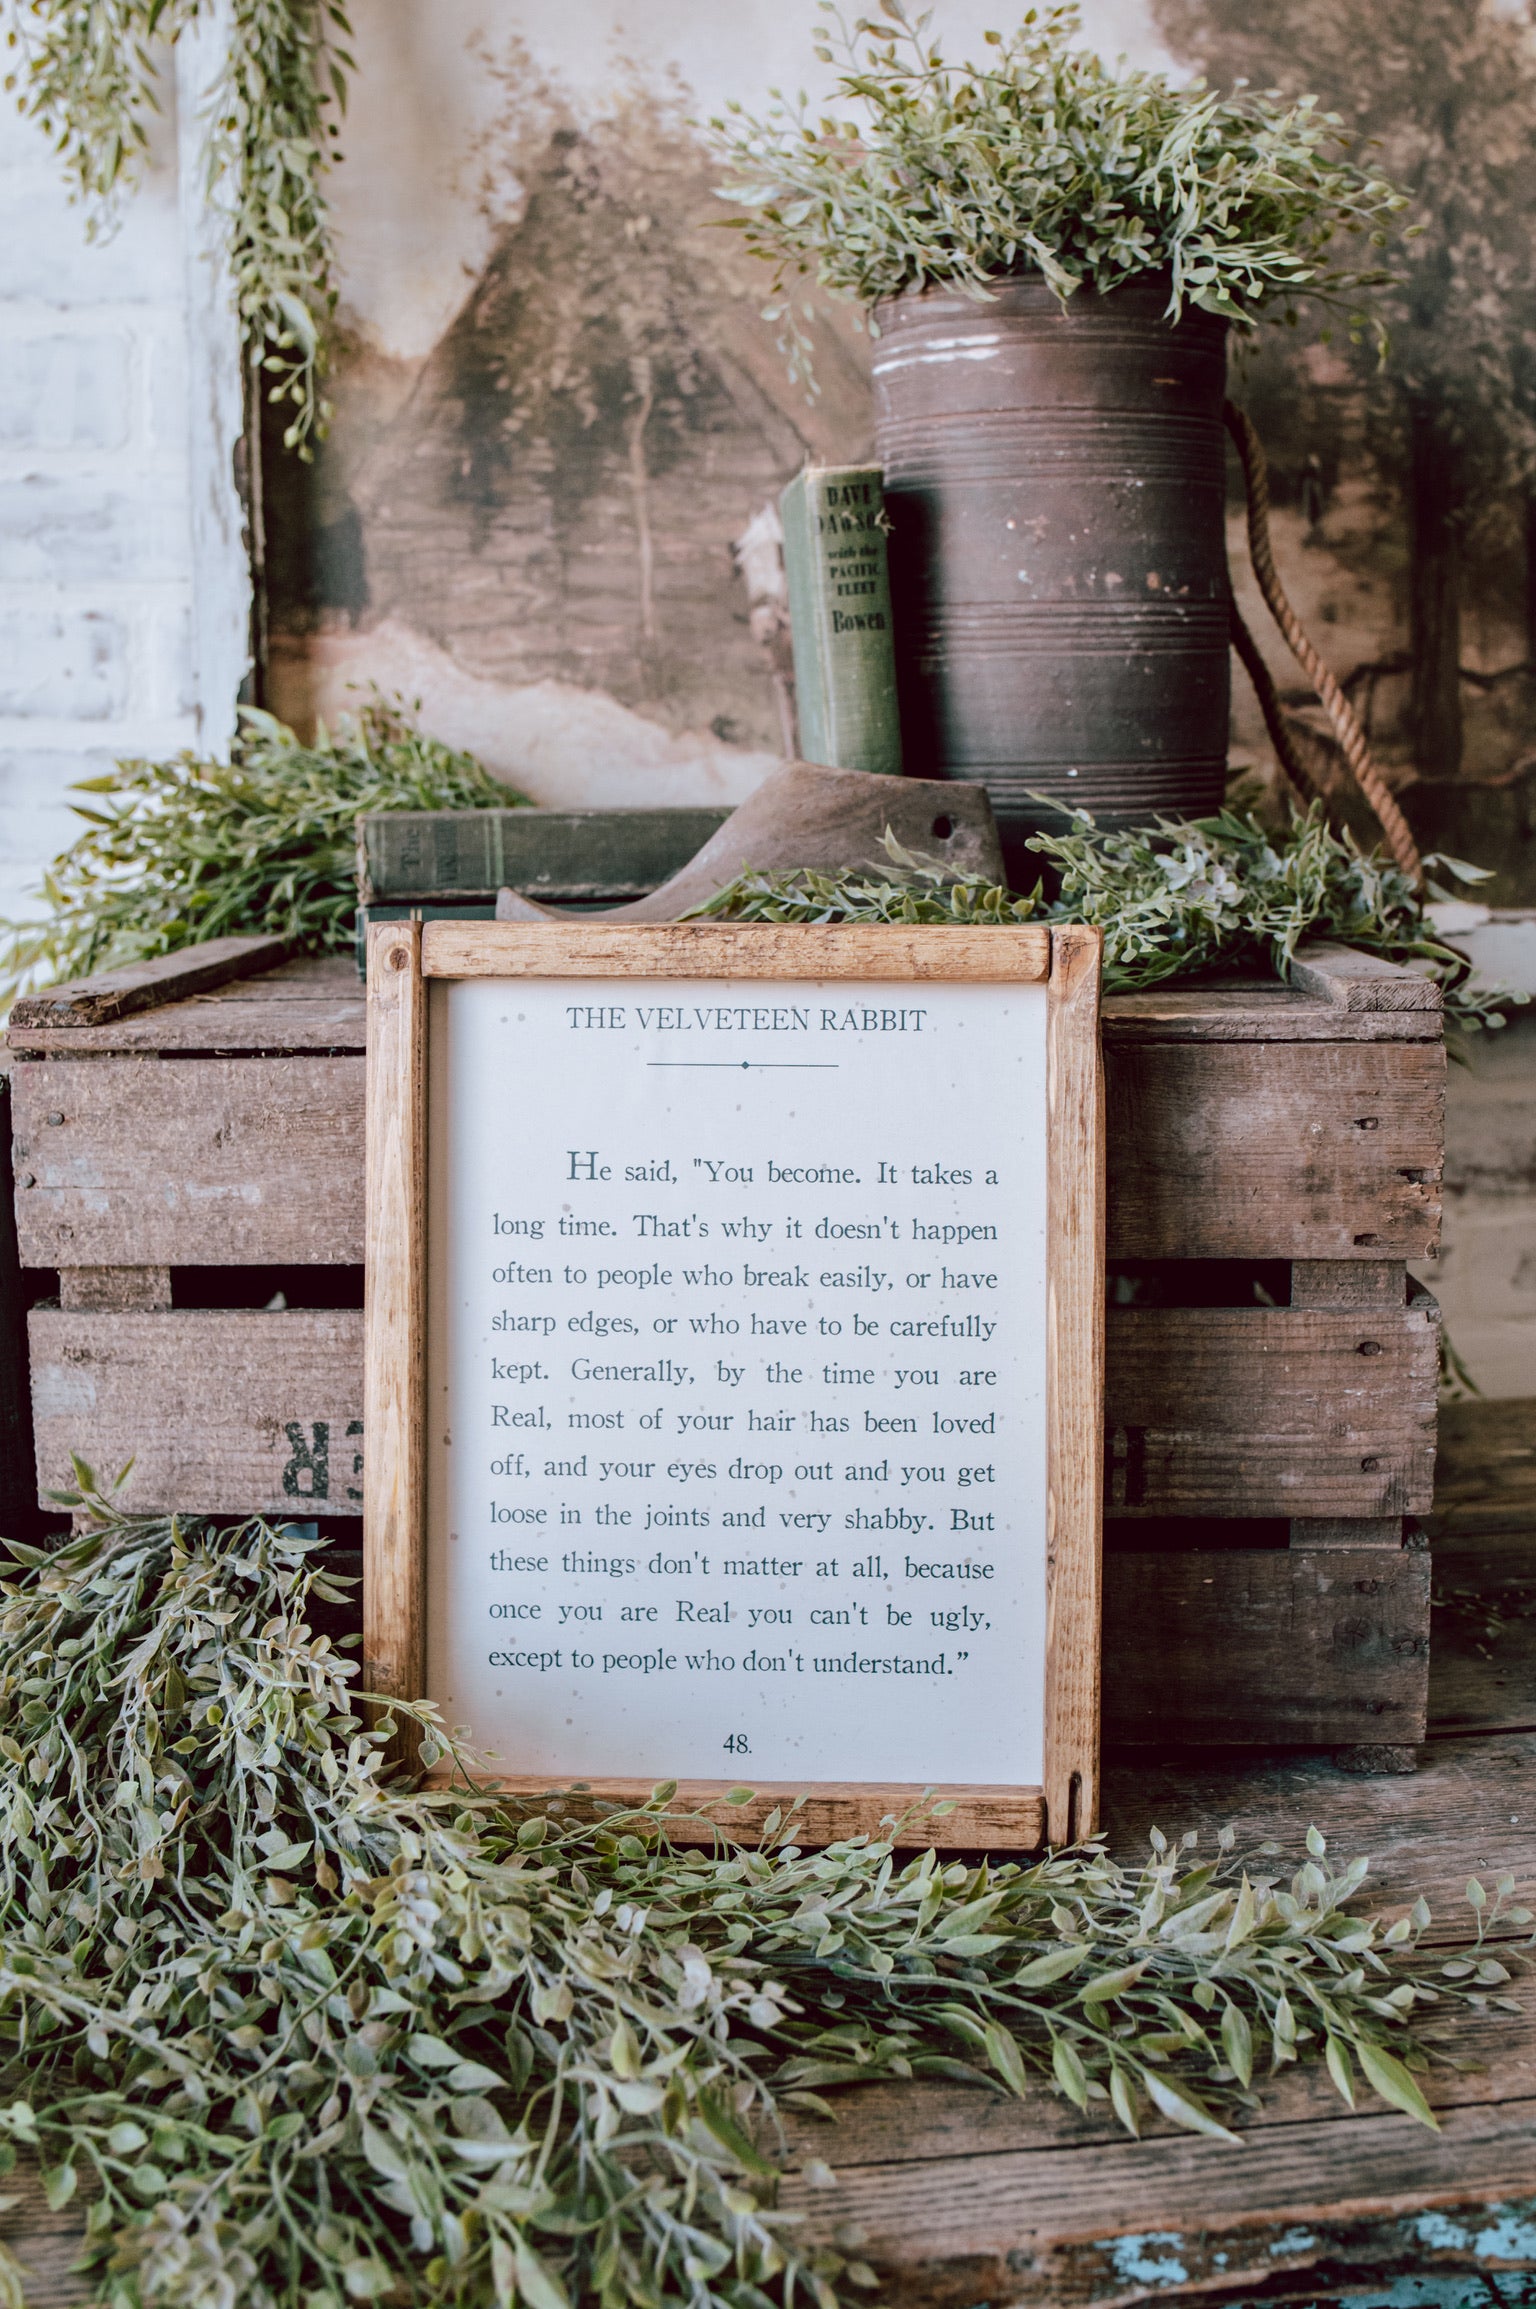 DAVE
DAWSON
with the
PACIFIC
FLEET
Bowen
The
THE VELVETEEN RABBIT
He said, "You become. It takes a
long time. That's why it doesn't happen
often to people who break easily, or have
sharp edges, or who have to be carefully
kept. Generally, by the time you are
Real, most of your hair has been loved
off, and your eyes drop out and you get
loose in the joints and very shabby. But
these things don't matter at all, because
once you are Real you can't be ugly,
except to people who don't understand.”
48.